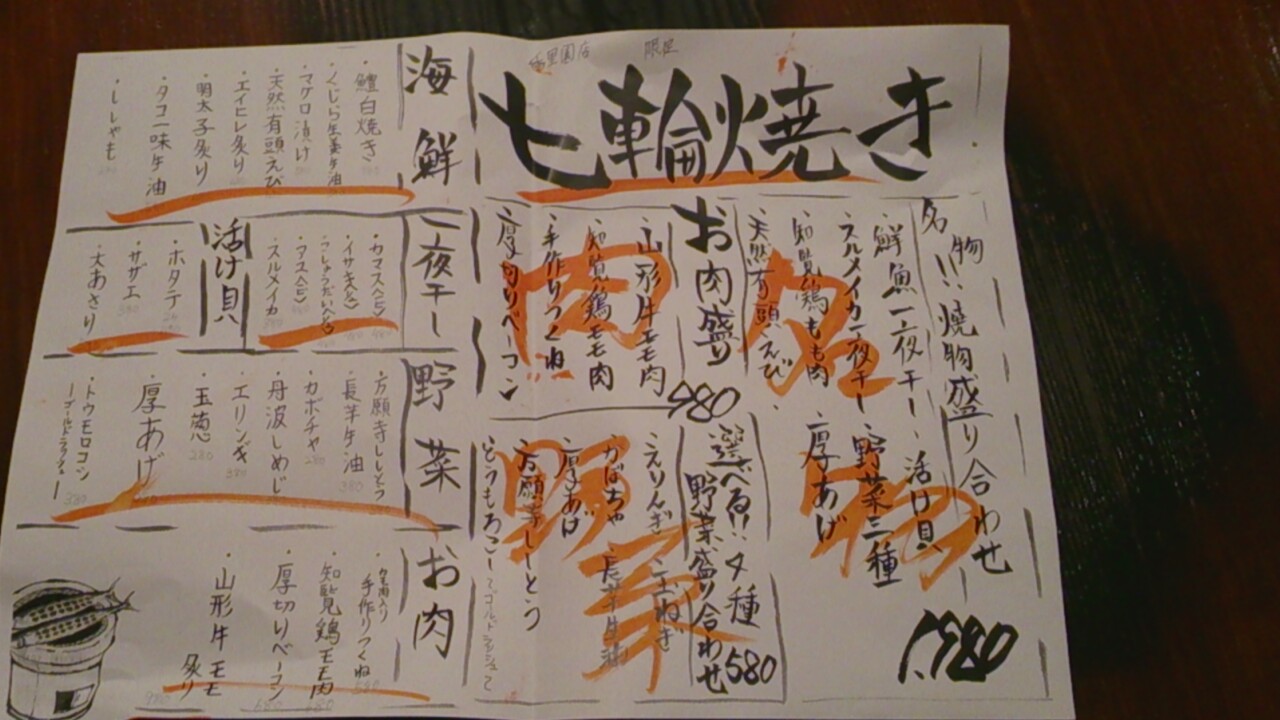 限定
七輪焼き
名物!!焼物盛り合わせ
鮮魚一夜干し・活け貝
スルメイカ一夜干し・野菜三種
知覧鶏もも肉
厚あげ
天然有頭えび
名物
1,380
お肉盛り
980
・山形牛モモ肉
・知覧鶏モモ肉
・手作りつくね
・厚切りベーコン
肉
選べる!!4種
野菜盛り合わせ580
えりんぎ
玉ねぎ
かぼちゃ
長芋牛油
厚あげ
万願寺ししとう
とうもろこし
野菜
海鮮
・鱧白焼き
・くじら生姜牛油
・マグロ漬け
・天然有頭えび
・エイヒレ炙り
・明太子炙り
・タコ一味牛油
・ししゃも
一夜干し
・カマス
・イサキ
・アユ
・スルメイカ
活け貝
・ホタテ
・サザエ
・大あさり
野菜
・万願寺ししとう
・長芋牛油
380
・カボチャ
280
・丹波しめじ
・エリンギ
380
・玉葱
280
・厚あげ
・トウモロコシ
380
お肉
・手作りつくね
・知覧鶏モモ肉
・厚切りベーコン
・山形牛モモ炙り